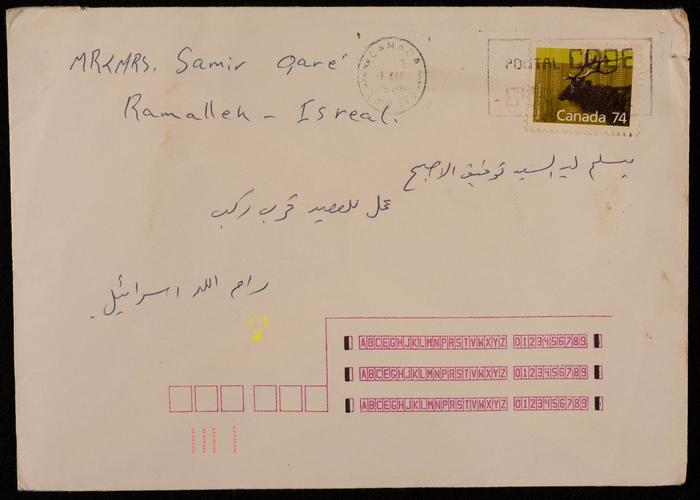 MR&MRS. Samir Qaré
Ramalleh - Isreal.
CANADA
POSTAL CODE
Canada 74
يسلم ليد السيد توفيق الاصبح
محل للعصير قرب ركب
رام الله اسرائيل.
ABCEGHJKLMNPRSTVWXYZ 0123456789
ABCEGHJKLMNPRSTVWXYZ 0123456789
ABCEGHJKLMNPRSTVWXYZ 0123456789